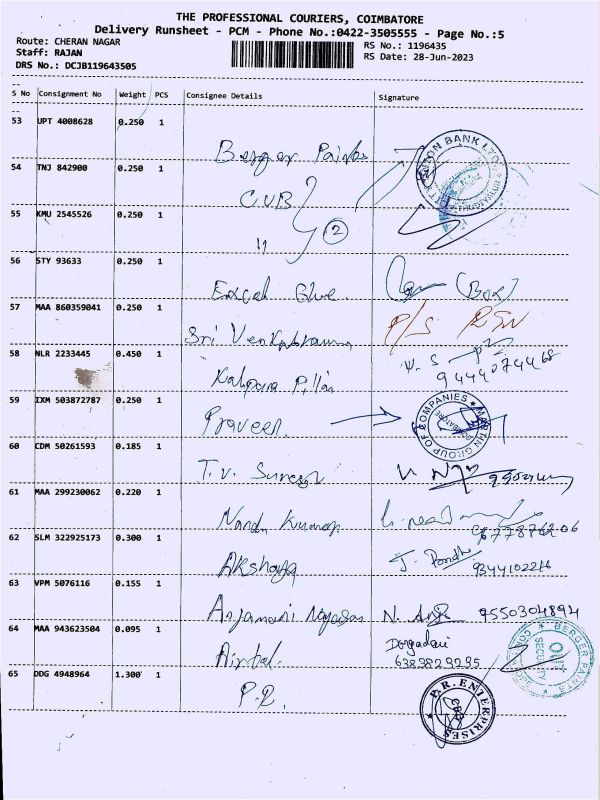 THE PROFESSIONAL COURIERS, COIMBATORE
Delivery Runsheet - PCM - Phone No.:0422-3505555 - Page No.:5
Route: CHERAN NAGAR
Staff: RAJAN
DRS No.: DCJB119643505
RS No.: 1196435
RS Date: 28-Jun-2023
S No Consignment No Weight PCS Consignee Details Signature
53 UPT 4008628 0.250 1
Berger Paints
54 TNJ 842900 0.250 1
CUB
55 KMU 2545526 0.250 1
11 2
56 STY 93633 0.250 1
Excel Glue (Box)
57 MAA 860359041 0.250 1
Sri P/S
58 NLR 2233445 0.450 1
Kalpana
59 IXM 503872787 0.250 1
Praveen.
MARTIN GROUP OF COMPANIES
COIMBATORE
60 CDM 50261593 0.185 1
T.V. Suresh
61 MAA 299230062 0.220 1
Nanda Kumar
62 SLM 322925173 0.300 1
Akshaya 9344102216
63 VPM 5076116 0.155 1
Anjamani N. 9550304894
64 MAA 943623504 0.095 1
Airtel
6383829295
BERGER PAINTS
OUT
SECURITY
65 DDG 4948964 1.300 1
P.R.
P.R. ENTERPRISES
CBE